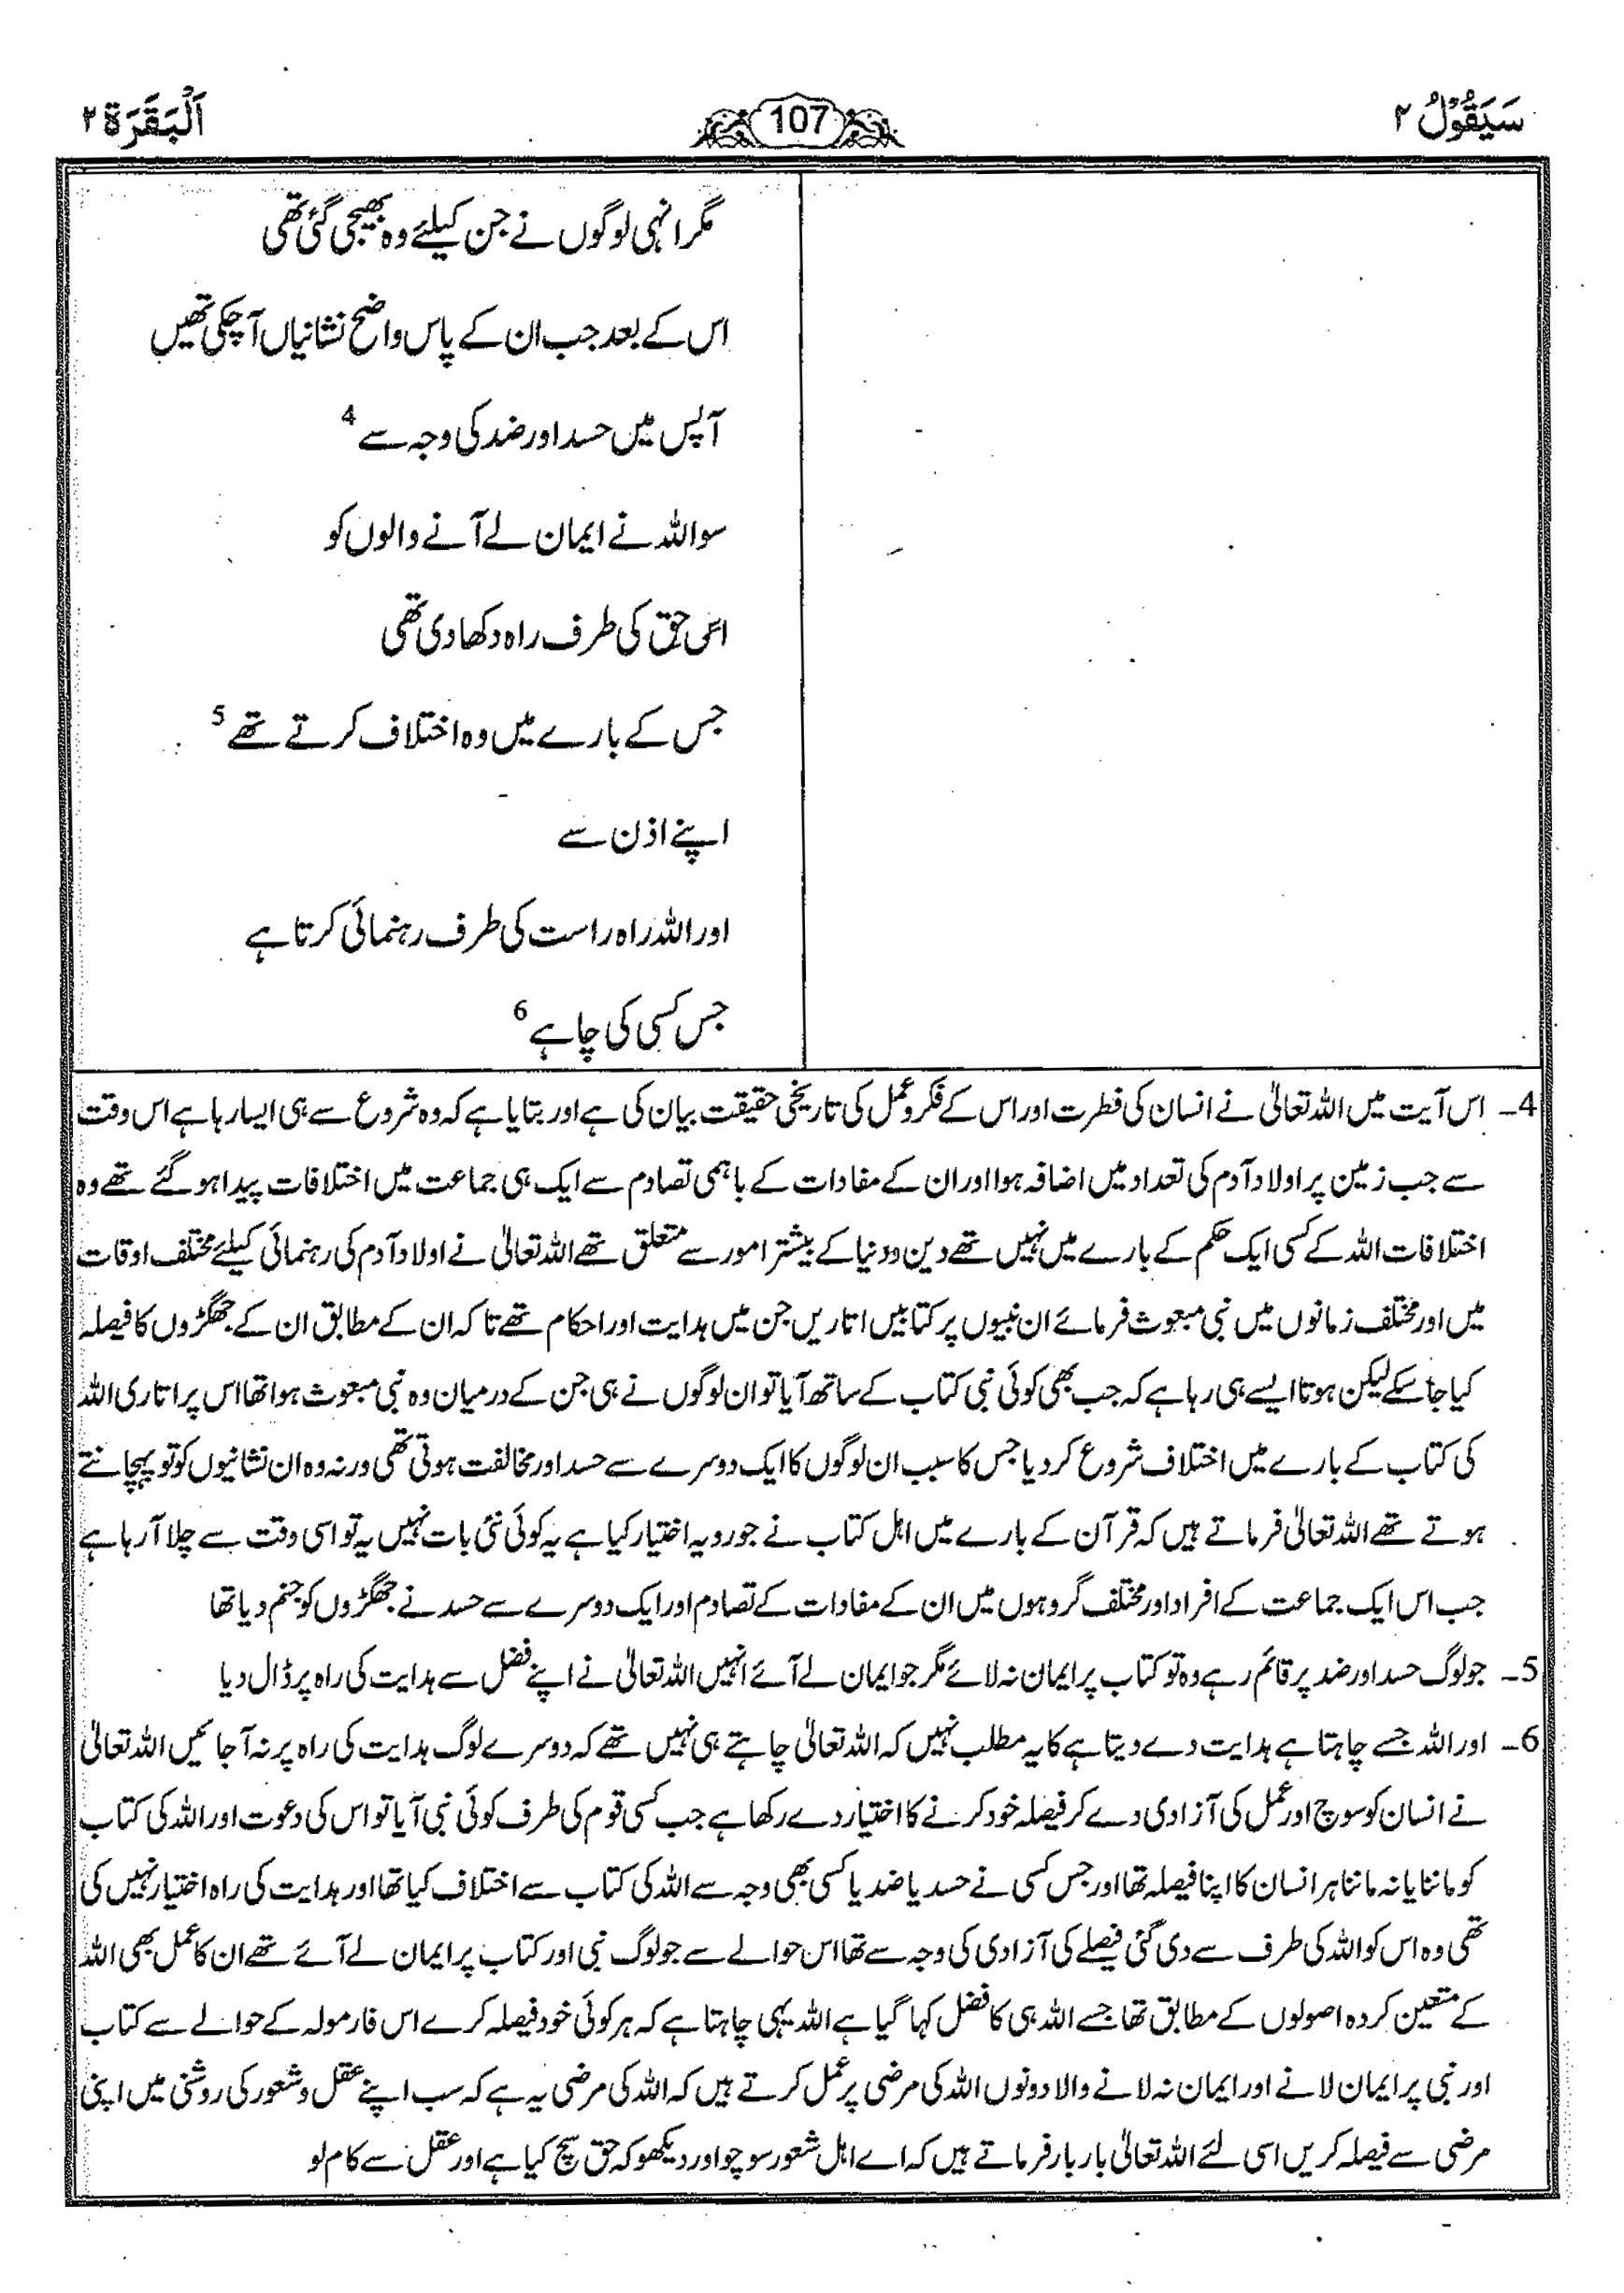 سَيَقُوْلُ ٢
107
اَلْبَقَرَة ٢
مگر انہی لوگوں نے جن کیلئے وہ بھیجی گئی تھی
اس کے بعد جب ان کے پاس واضح نشانیاں آ چکی تھیں
آپس میں حسد اور ضد کی وجہ سے 4
سو اللہ نے ایمان لے آنے والوں کو
اس حق کی طرف راہ دکھا دی تھی
جس کے بارے میں وہ اختلاف کرتے تھے 5
اپنے اذن سے
اور اللہ راہ راست کی طرف رہنمائی کرتا ہے
جس کسی کی چاہے 6
4۔ اس آیت میں اللہ تعالیٰ نے انسان کی فطرت اور اس کے فکر و عمل کی تاریخی حقیقت بیان کی ہے اور بتایا ہے کہ وہ شروع سے ہی ایسا رہا ہے اس وقت
سے جب زمین پر اولاد آدم کی تعداد میں اضافہ ہوا اور ان کے مفادات کے باہمی تصادم سے ایک ہی جماعت میں اختلافات پیدا ہو گئے تھے وہ
اختلافات اللہ کے کسی ایک حکم کے بارے میں نہیں تھے دین و دنیا کے بیشتر امور سے متعلق تھے اللہ تعالیٰ نے اولاد آدم کی رہنمائی کیلئے مختلف اوقات
میں اور مختلف زمانوں میں نبی مبعوث فرمائے ان نبیوں پر کتابیں اتاریں جن میں ہدایت اور احکام تھے تاکہ ان کے مطابق ان کے جھگڑوں کا فیصلہ
کیا جا سکے لیکن ہوتا ایسے ہی رہا ہے کہ جب بھی کوئی نبی کتاب کے ساتھ آیا تو ان لوگوں نے ہی جن کے درمیان وہ نبی مبعوث ہوا تھا اس پر اتاری اللہ
کی کتاب کے بارے میں اختلاف شروع کر دیا جس کا سبب ان لوگوں کا ایک دوسرے سے حسد اور مخالفت ہوتی تھی ورنہ وہ ان نشانیوں کو تو پہچانتے
ہوتے تھے اللہ تعالیٰ فرماتے ہیں کہ قرآن کے بارے میں اہل کتاب نے جو رویہ اختیار کیا ہے یہ کوئی نئی بات نہیں یہ تو اسی وقت سے چلا آ رہا ہے
جب اس ایک جماعت کے افراد اور مختلف گروہوں میں ان کے مفادات کے تصادم اور ایک دوسرے سے حسد نے جھگڑوں کو جنم دیا تھا
5۔ جو لوگ حسد اور ضد پر قائم رہے وہ تو کتاب پر ایمان نہ لائے مگر جو ایمان لے آئے انہیں اللہ تعالیٰ نے اپنے فضل سے ہدایت کی راہ پر ڈال دیا
6۔ اور اللہ جسے چاہتا ہے ہدایت دے دیتا ہے کا یہ مطلب نہیں کہ اللہ تعالیٰ چاہتے ہی نہیں تھے کہ دوسرے لوگ ہدایت کی راہ پر نہ آ جائیں اللہ تعالیٰ
نے انسان کو سوچ اور عمل کی آزادی دے کر فیصلہ خود کرنے کا اختیار دے رکھا ہے جب کسی قوم کی طرف کوئی نبی آیا تو اس کی دعوت اور اللہ کی کتاب
کو ماننا یا نہ ماننا ہر انسان کا اپنا فیصلہ تھا اور جس کسی نے حسد یا ضد یا کسی بھی وجہ سے اللہ کی کتاب سے اختلاف کیا تھا اور ہدایت کی راہ اختیار نہیں کی
تھی وہ اس کو اللہ کی طرف سے دی گئی فیصلے کی آزادی کی وجہ سے تھا اس حوالے سے جو لوگ نبی اور کتاب پر ایمان لے آئے تھے ان کا عمل بھی اللہ
کے متعین کردہ اصولوں کے مطابق تھا جسے اللہ ہی کا فضل کہا گیا ہے اللہ یہی چاہتا ہے کہ ہر کوئی خود فیصلہ کرے اس فارمولہ کے حوالے سے کتاب
اور نبی پر ایمان لانے اور ایمان نہ لانے والا دونوں اللہ کی مرضی پر عمل کرتے ہیں کہ اللہ کی مرضی یہ ہے کہ سب اپنے عقل و شعور کی روشنی میں اپنی
مرضی سے فیصلہ کریں اسی لئے اللہ تعالیٰ بار بار فرماتے ہیں کہ اے اہل شعور سوچو اور دیکھو کہ حق سچ کیا ہے اور عقل سے کام لو